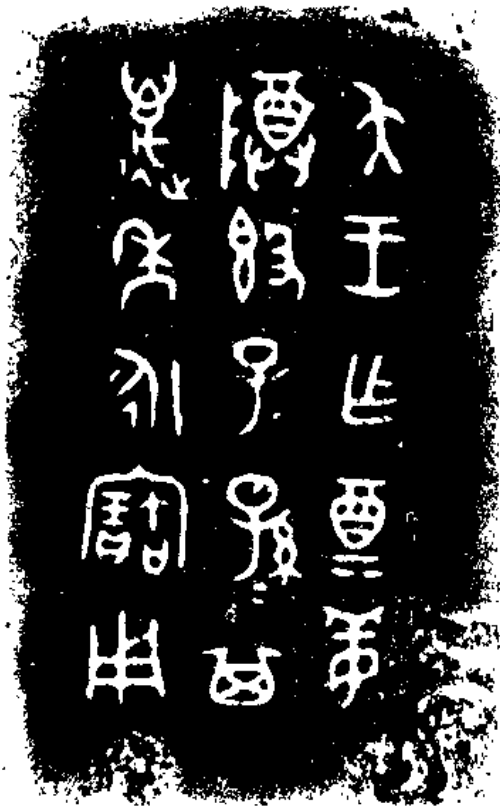 夨王乍奠姜
尊簋子=孫=其
萬年永寶用